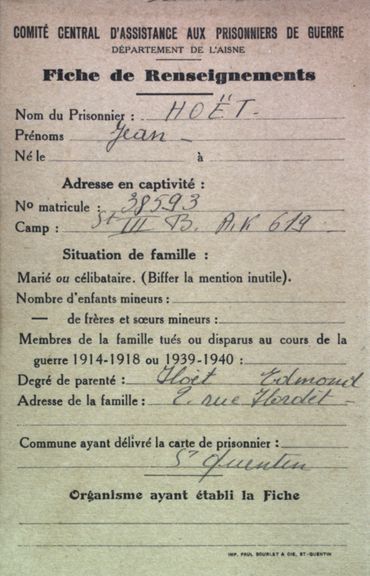 COMITÉ CENTRAL D'ASSISTANCE AUX PRISONNIERS DE GUERRE
DÉPARTEMENT DE L'AISNE
Fiche de Renseignements
Nom du Prisonnier : HOËT -
Prénoms Jean -
Né le à
Adresse en captivité :
No matricule : 38593
Camp : St III B. A.K 619 -
Situation de famille :
Marié ou célibataire. (Biffer la mention inutile).
Nombre d'enfants mineurs :
— de frères et sœurs mineurs :
Membres de la famille tués ou disparus au cours de la
guerre 1914-1918 ou 1939-1940 :
Degré de parenté : Hoët Edmond
Adresse de la famille : 2. rue Hordret -
Commune ayant délivré la carte de prisonnier :
St Quentin
Organisme ayant établi la Fiche
IMP. PAUL BOURLET & CIE, ST-QUENTIN